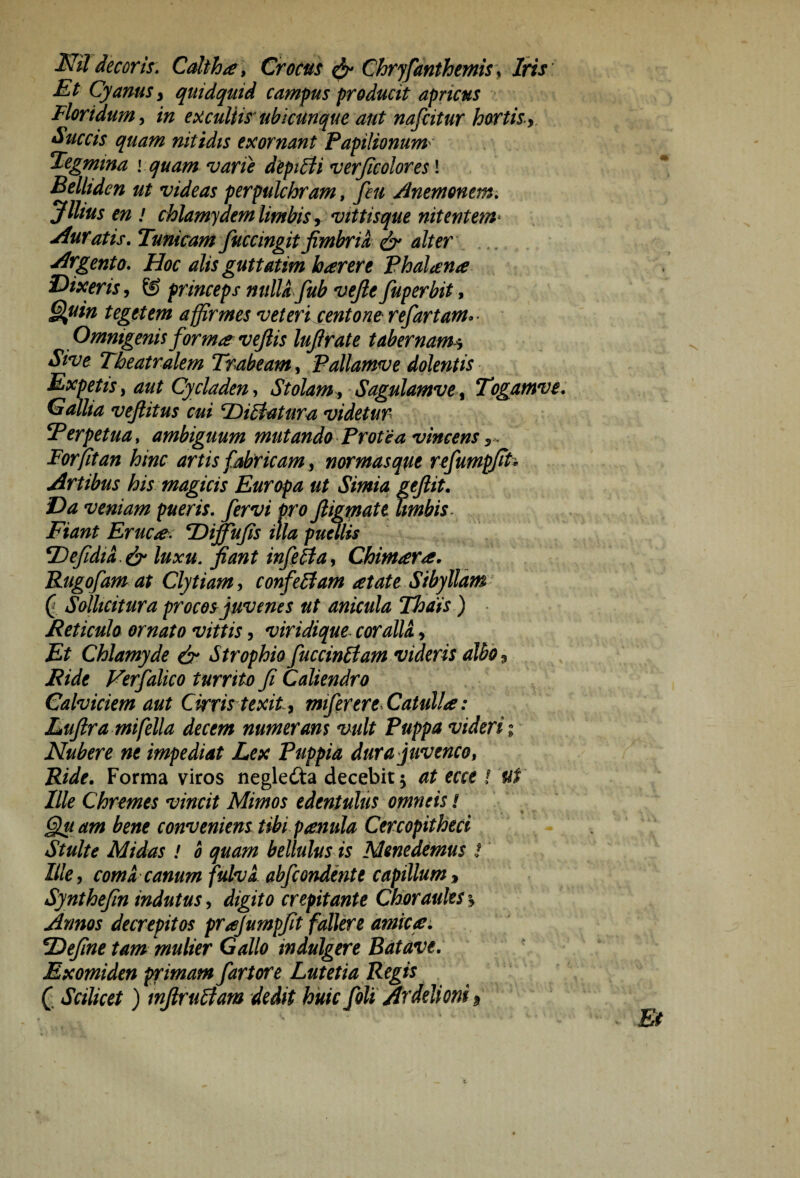 Nil decoris. Calthæ, Crocus & Chryſanthemis, Iris
Et Cyanus, quidquid campus producit apricus
Floridum, in excultis ubicunque aut naſcitur hortis,
Succis quam nitidis exornant Papilionum
Tegmina ! quam varie depicti verſicolores !
Belliden ut videas perpulchram, ſeu Anemonem.
Illius en ! chlamydem limbis, vittisque nitentem
Auratis. Tunicam ſuccingit fimbriâ & alter
Argento. Hoc alis guttatim hærere Phalænæ
Dixeris, & princeps nullâ ſub veſte ſuperbit,
Quin tegetem affirmes veteri centone reſartam.
Omnigenis formæ veſtis luſtrate tabernam,
Sive Theatralem Trabeam, Pallamve dolentis
Expetis, aut Cycladen, Stolam, Sagulamve, Togamve.
Gallia veſtitus cui Dictatura videtur
Perpetua, ambiguum mutando Protëa vincens,
Forſitan hinc artis fabricam, normasque reſumpſit.
Artibus his magicis Europa ut Simia geſtit.
Da veniam pueris. ſervi pro ſtigmate limbis
Fiant Erucæ. Diffuſis illa puellis
Deſidiâ & luxu. fiant inſecta, Chimæræ.
Rugoſam at Clytiam, confectam ætate Sibyllam
( Sollicitura procos juvenes ut anicula Thaïs )
Reticulo ornato vittis, viridique corallâ,
Et Chlamyde & Strophio ſuccinctam videris albo,
Ride Verſalico turrito ſi Caliendro
Calviciem aut Cirris texit, miſerere Catullæ :
Luſtra miſella decem numerans vult Puppa videri ;
Nubere ne impediat Lex Puppia dura juvenco,
Ride. Forma viros neglecta decebit ; at ecce ! ut
Ille Chremes vincit Mimos edentulus omneis !
Quam bene conveniens tibi pænula Cercopitheci
Stulte Midas ! ò quam bellulus is Menedemus !
Ille, comâ canum fulvâ abſcondente capillum,
Syntheſin indutus, digito crepitante Choraules ;
Annos decrepitos præſumpſit fallere amicæ.
Deſine tam mulier Gallo indulgere Batave.
Exomiden primam ſartore Lutetia Regis
( Scilicet ) inſtructam dedit huic ſoli Ardelioni,
Et